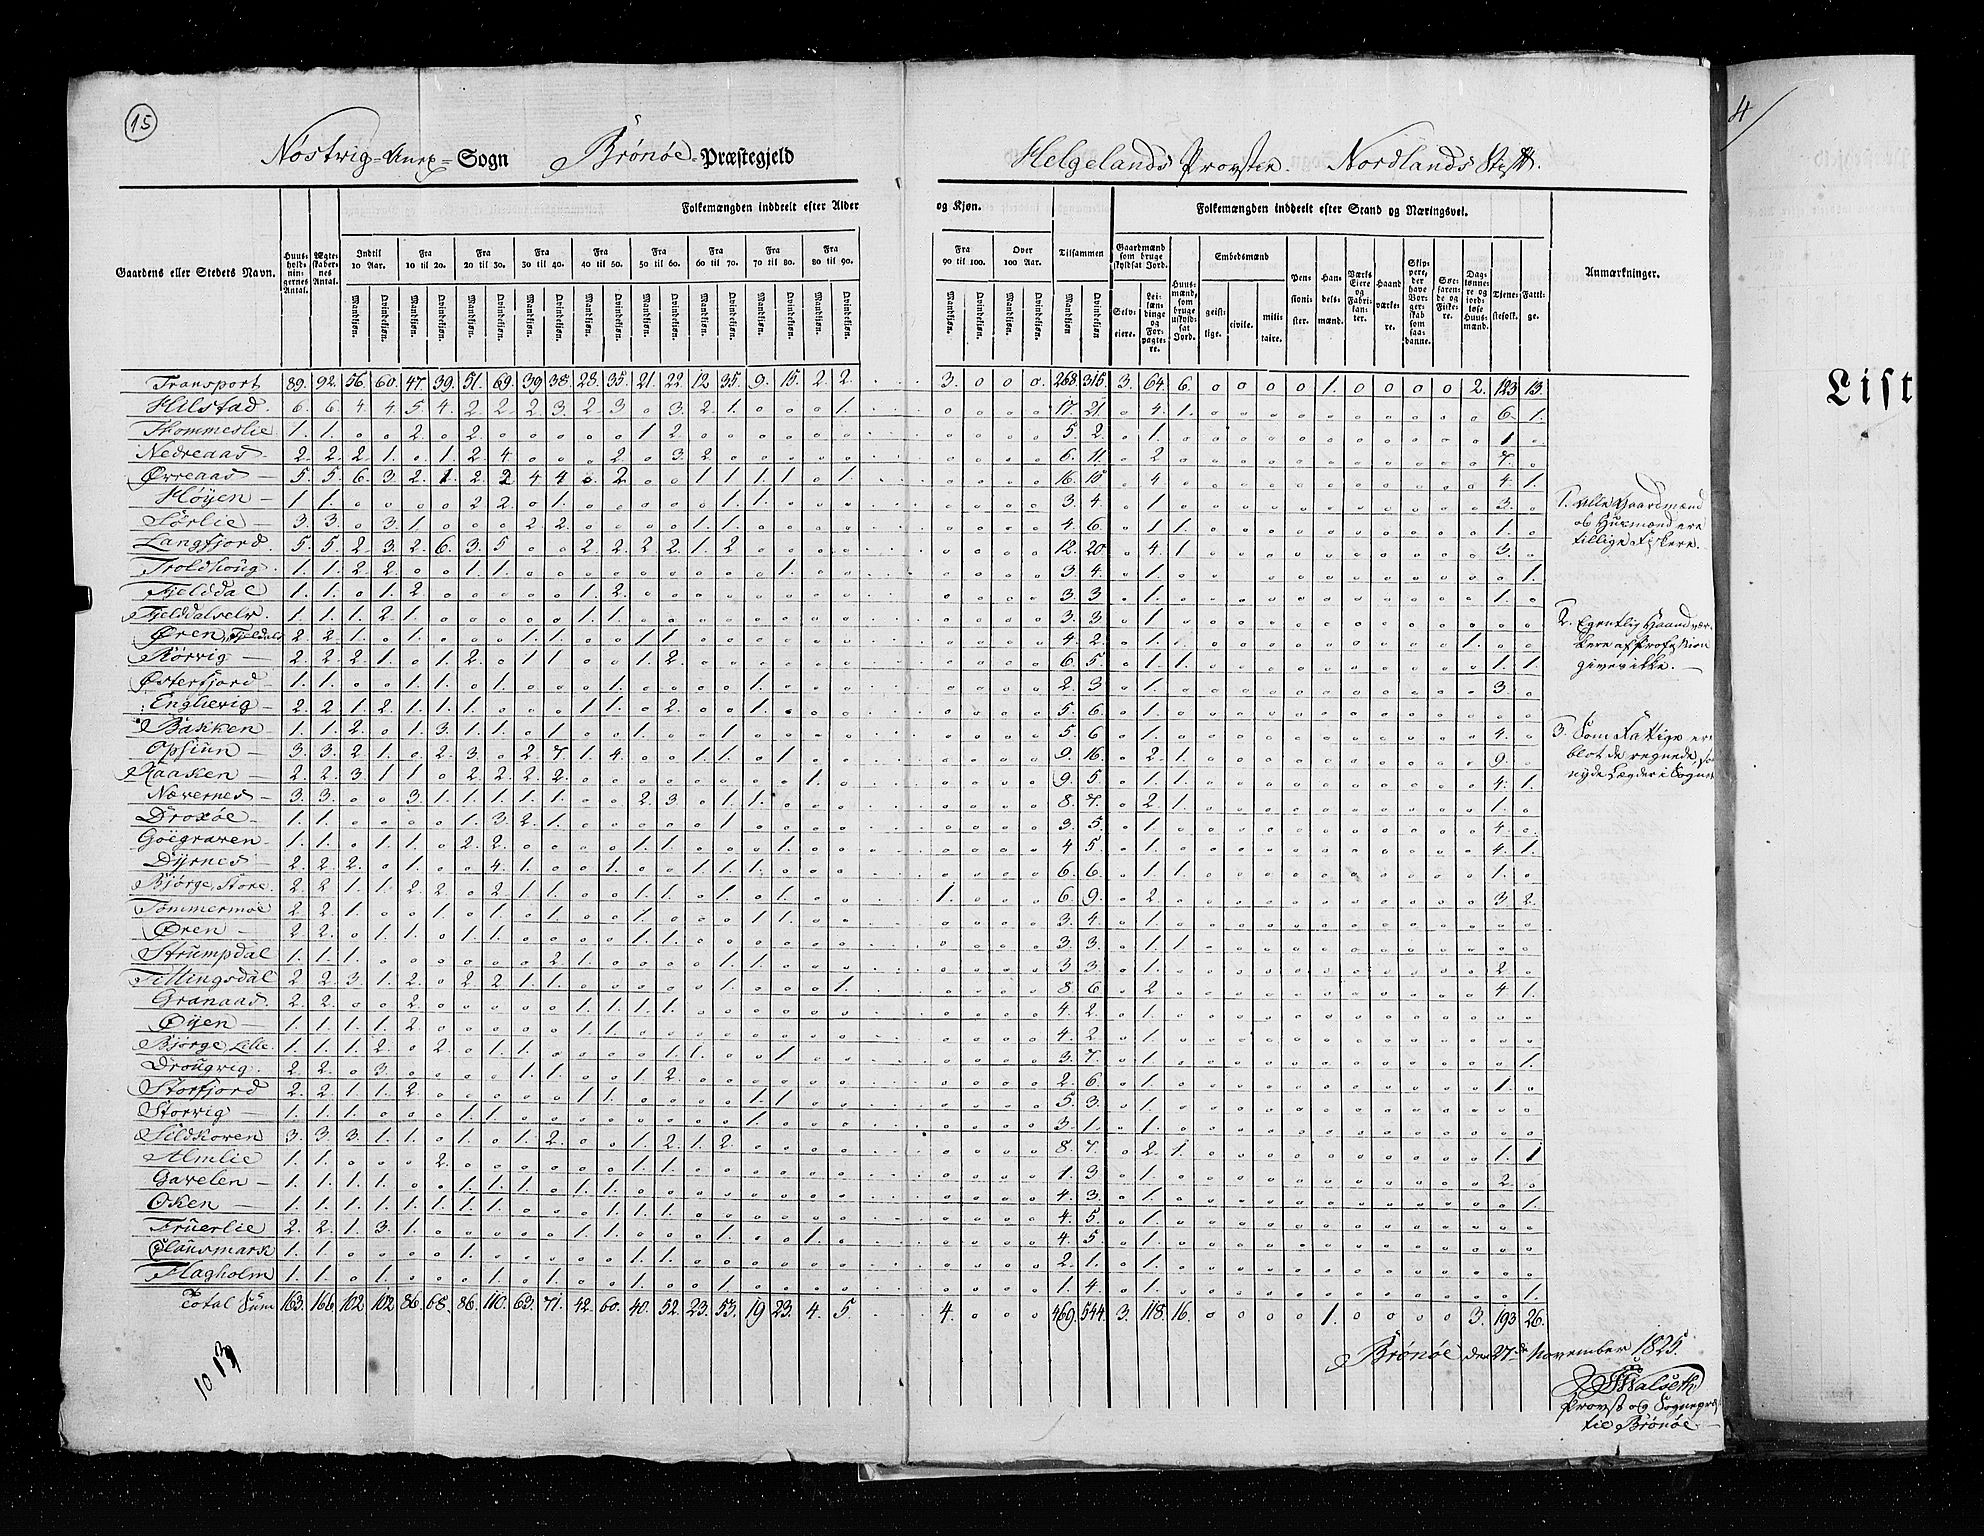 15
Nøstvig-Anx-Sogn Brønøe-Præstegjeld Helgelands Provstie. Nordlands Stift.
Folkemængden inddeelt efter Alder og Kjøn. Folkemængden inddeelt efter Stand og Næringsvei.
Gaardens eller Stedets Navn. Huus-holdningernes Antal. Ægteskabernes Antal. Indtil 10 Aar. Fra 10 til 20. Fra 20 til 30. Fra 30 til 40. Fra 40 til 50. Fra 50 til 60. Fra 60 til 70. Fra 70 til 80. Fra 80 til 90. Fra 90 til 100. Over 100 Aar. Tilsammen Gaardmænd som bruge skyldsat Jord. Embedsmænd Anmærkninger.
Mandkjøn. Qvindekjøn. Selveiere. Leilændinge og Forpagtere. Huusmænd, som bruge uskyldsat Jord. geistlige. civile. militaire. Pensionister. Handelsmænd. Værks Eiere og Fabrikanter. Haandværkere. Skippere, der have Borgerskab som saadanne. Søefarende og Fiskere. Daglønnere og jordløse Huusmænd. Tjenestefolk. Fattige.
Transport 89. 92. 56. 60. 47. 39. 51. 69. 39 38. 28. 35. 21. 22. 12 35. 9. 15. 2. 2. 3. o o o. 268. 315. 3. 64. 6. o o o o 1. o o o o 2. 123 13.
Hilstad. 6. 6. 4. 4. 5. 4. 2. 2. 2. 3. 2. 3. o 3. 2. 1. o o o 1. 17. 21. o 4. 1. 6. 1.
Thommeslie 1. 1. o o 2. o 2. o o o o o 1 2. 5. 2. o 1. 1 o
Nedreaas 2. 2. 2. 1. o 1. 2. 4. o o o 2. o 3. 2. 6. 11. o 2 7. o
Øvreaas 5. 5. 6. 3. 2. 1. 2. 2 4 4. o 2. o o 1 1. 1. 1. o 1. 16. 15 o 4. 4. 1.
Høyen 1. 1. o o o o 2. 2. o 1. o o o o o 1. 1. 3. 4. o 1. 3. o
Sørlie 3. 3. o 3. 1. o o o 2 2. o o o o 1. 1. 4. 6. o 1. 1. 1. o
Langfjord. 5. 5. 2. 3. 2. 6. 3. 5. o o 2. 2. 2. 2. 1. 2. 12. 20 o 4. 1. 3. o
Troldhoug. 1. 1. 2. 2. o o 1. 1. o o o o o o o o o 1. 3. 4. o 1. o 1.
Fjelddal 1. 1. o 1. 2. o o o o o 1. 2. 3. 3. o 1. 1. o
Fjelddalselv 1. 1. 1. 2. 1. o o o o o 1. 1. 3. 3. o 1
Øren, Fjeldals 2. 2. 1. o 1. o o o 1. 1. o o 1. 1. 4. 2. o 1. 1. o o
Rørvig 2. 2. 2. 1. o 1. 2. o 1. 1. o o 1. 2. 6. 5. o 1. 1. 1. 1.
Østerfjord 1. 1. o o 1. 1. o 1. o o o o 1. o o o 1. 2. 3. o 1. 3. o
Englievig 2. 2. 1. 2. 1. 1. 1. o o o 1. 1. o 2. o o 1. 5. 6. o 1. o o
Bakken 1. 1. 2. o 1. 3. 1. 1. o 1. o o 1. o o 1. 5. 6 o 1. 4. o
Opsiun 3. 3. 2. 1. o 2. 3. o 2. 7. 1. 4. o o 1. 1. o 1. 9. 16. o 2. 1. 9. o
Aaaken 2. 2. 3. 1. 1. o 2. 2. 2. 2. o o o o o o o o 1. 9. 5. o 1. 1. 4. 1.
Nævernes 3. 3. o o 3. 1. 1. 1. 1. 1. o o 2. 3. o 1. 1. 8. 7. o 2. 1. 1. o
Droxøe 1. 1. o o o o 1. 3. 2. 1. o o o o o 1. 3. 5. o 1. 4. o
Goegraven 1. 1. o 1. 1. o 2. 2. o o o o 1. 1. o o o 1. 4 5. o 1. 4. 1.
Dyrnes 2. 2. 2. o 1. o o 4. 1. o o 1. o o 1. 1. 1. 6. 6. o 1. 1. 1. o
Bjørge, Store 2. 2 1. 1. 2. 2. o 2. 1. 1. o o 1. 1. o 1. o 1. o o 1. 6. 9. o 2. 3. 2.
Tømmermoe 2. 2. 1. o o 1. o 1. o 1. o o 1. o o o 1. 1. 3. 4. o 1. o o
Øren 2. 2. o 1. 1. o 1. 1. o o o o 1. 1. 3. 3. o 1. 1.
Strumpdal 1. 1. 1. o o o o o o 2. 1. o o o o 1. 1. 3. 3. o 1. 2. o
Tettingsdal 2. 2. 3. 1. 2. o 2. 2. 1. 1. o o o o o 1. o o o 1. 8 6. o 2. 4 1.
Granaas. 2. 2. o o 2. o o o o o 1. 1. 1. 1. 4. 2. o 1.
Øyen 1. 1. 1. 1. 2. o o o o o 1. 1. 4. 2 o 1.
Bjørge, Lille 1. 1. 1. 2. o 2. o 1. 1. o o o o 1. 1. o o 1. 3. 7. o 1. o 1.
Drougvig. 2. 2. o 3. o o o o 1. 1. o o 1. 2. 2. 6. o 1. 1. o
Storfjord 2. 2. 1. 1. 2. o o o o o 1. 1. o o o o 1. 1. 5. 3. o 1.
Storvig 1. 1. 1. o o o 1. 1. o o o o o o o o 1. 3. 1. o 1.
Sildhoven 3. 3. 3. 1. 1. o 1. o 1. 2. o o 1. 2. 1. 2. 8. 7. o 2. 1. 1. 1
Almlie 1. 1. o o o 2. o o o o o o 1. 1. 1. 3. o 1. 2. o
Gavelen 1. 1. 1. 1. o o 1. 1. 1. o 1. 1. 4. 3. o 1. o 1.
Oken 1. 1. 1. 1. 1. 1. 1. 1. o o o 1. 1. 1. 4. 5. o 1.
Fruerlie 2. 2. 1. 3. 1. o o o o o 1. 1. o o o 1. o o 1. 4. 5. o 1.
Clausmark 1. 1. o o o o 1. o o o o o 1. 1. 2. 1. o 1.
Flagholm 1. 1. o 1. o o o 1. o 1. o o o 1. o 1. 1. 4. o 1. o 1.
Total Sum 163. 166. 102. 102. 86. 68. 86. 110. 63. 71. 42. 60. 40. 52. 23. 53. 19 23. 4. 5. 4. o o o 469. 544 3. 118. 16. o o o o 1. o o o o 3. 193 26.
1. Alle Gaardmænd
og Huxmænd ere
tillige Fiskere.
2. Egentlig Haandvær-
kere af Profession
gives ikke.
3. Som Fattige er
blot de regnede, som
nyde Lægder i Sognet
1013
Brønøe den 27de November 1825.
Walseth
Provst og Sognepræst
til Brønøe
4
List